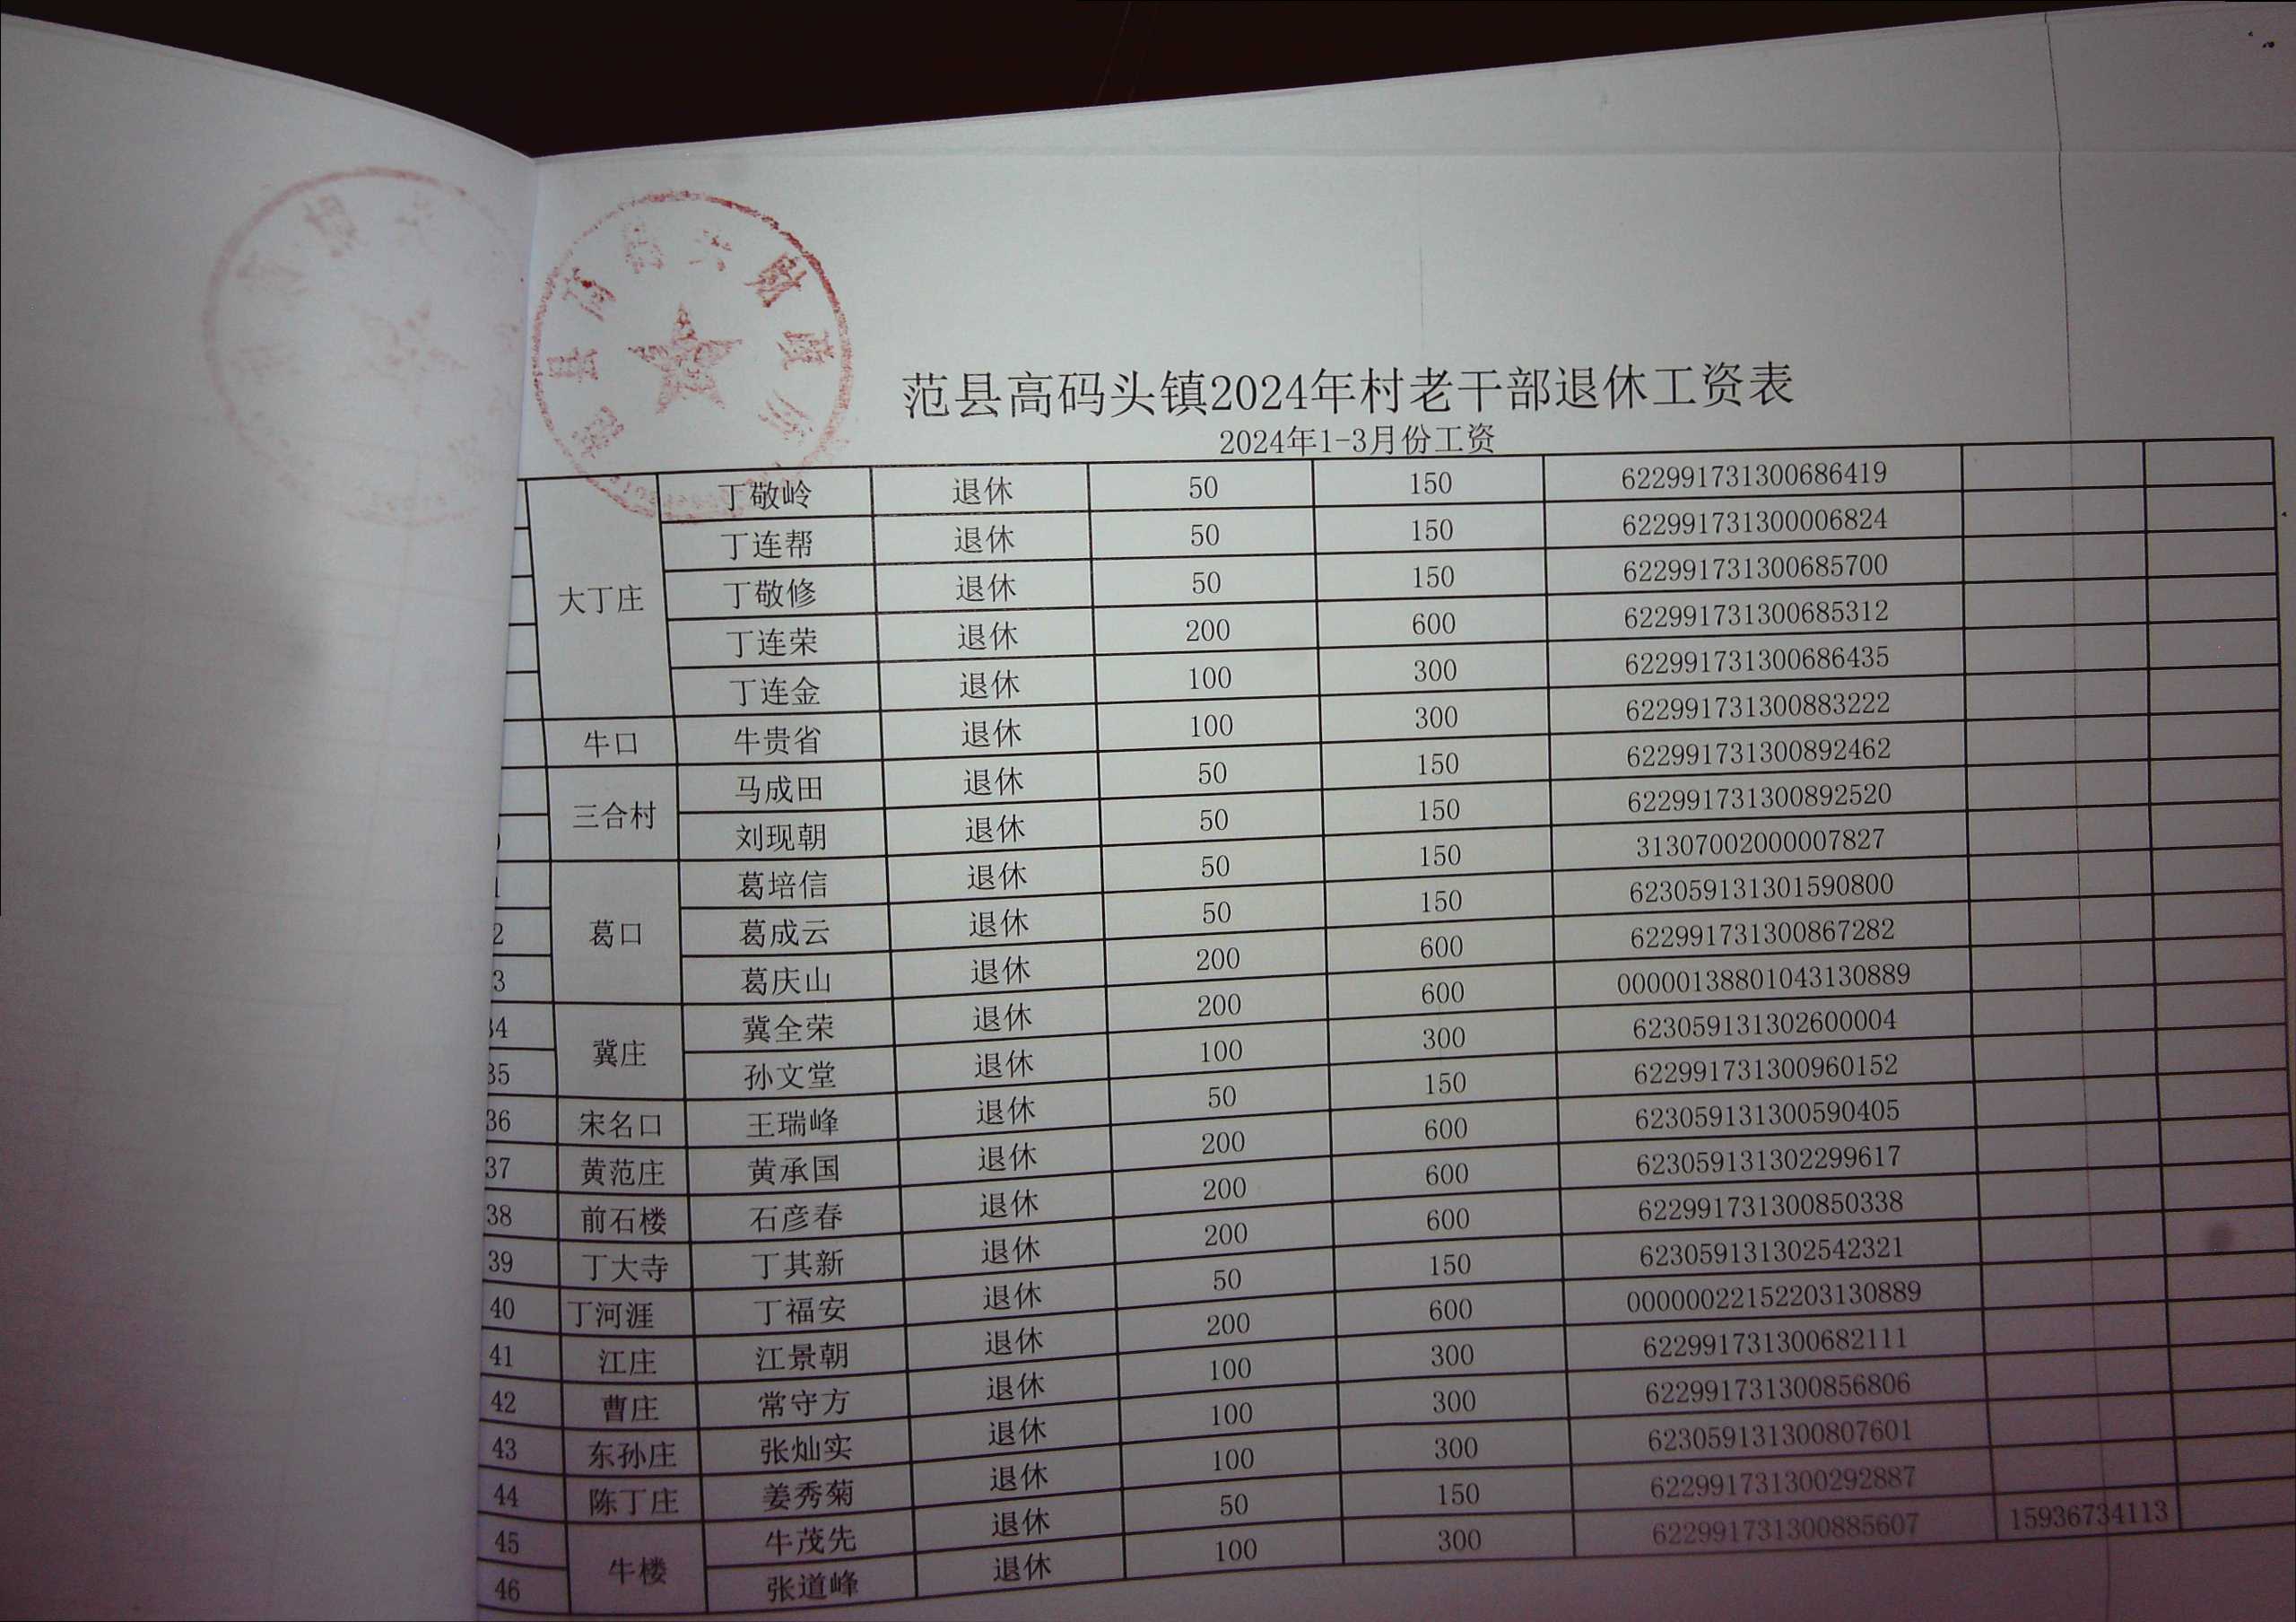 范县高码头镇2024年村老干部退休工资表
2024年1-3月份工资
大丁庄 丁敬岭 退休 50 150 622991731300686419
丁连帮 退休 50 150 622991731300006824
丁敬修 退休 50 150 622991731300685700
丁连荣 退休 200 600 622991731300685312
丁连金 退休 100 300 622991731300686435
牛口 牛贵省 退休 100 300 622991731300883222
三合村 马成田 退休 50 150 622991731300892462
刘现朝 退休 50 150 622991731300892520
葛口 葛培信 退休 50 150 31307002000007827
葛成云 退休 50 150 623059131301590800
葛庆山 退休 200 600 622991731300867282
冀庄 冀全荣 退休 200 600 00000138801043130889
孙文堂 退休 100 300 623059131302600004
36 宋名口 王瑞峰 退休 50 150 622991731300960152
37 黄范庄 黄承国 退休 200 600 623059131300590405
38 前石楼 石彦春 退休 200 600 623059131302299617
39 丁大寺 丁其新 退休 200 600 622991731300850338
40 丁河涯 丁福安 退休 50 150 623059131302542321
41 江庄 江景朝 退休 200 600 00000022152203130889
42 曹庄 常守方 退休 100 300 622991731300682111
43 东孙庄 张灿实 退休 100 300 622991731300856806
44 陈丁庄 姜秀菊 退休 100 300 623059131300807601
45 牛楼 牛茂先 退休 50 150 622991731300292887
46 张道峰 退休 100 300 622991731300885607 15936734113